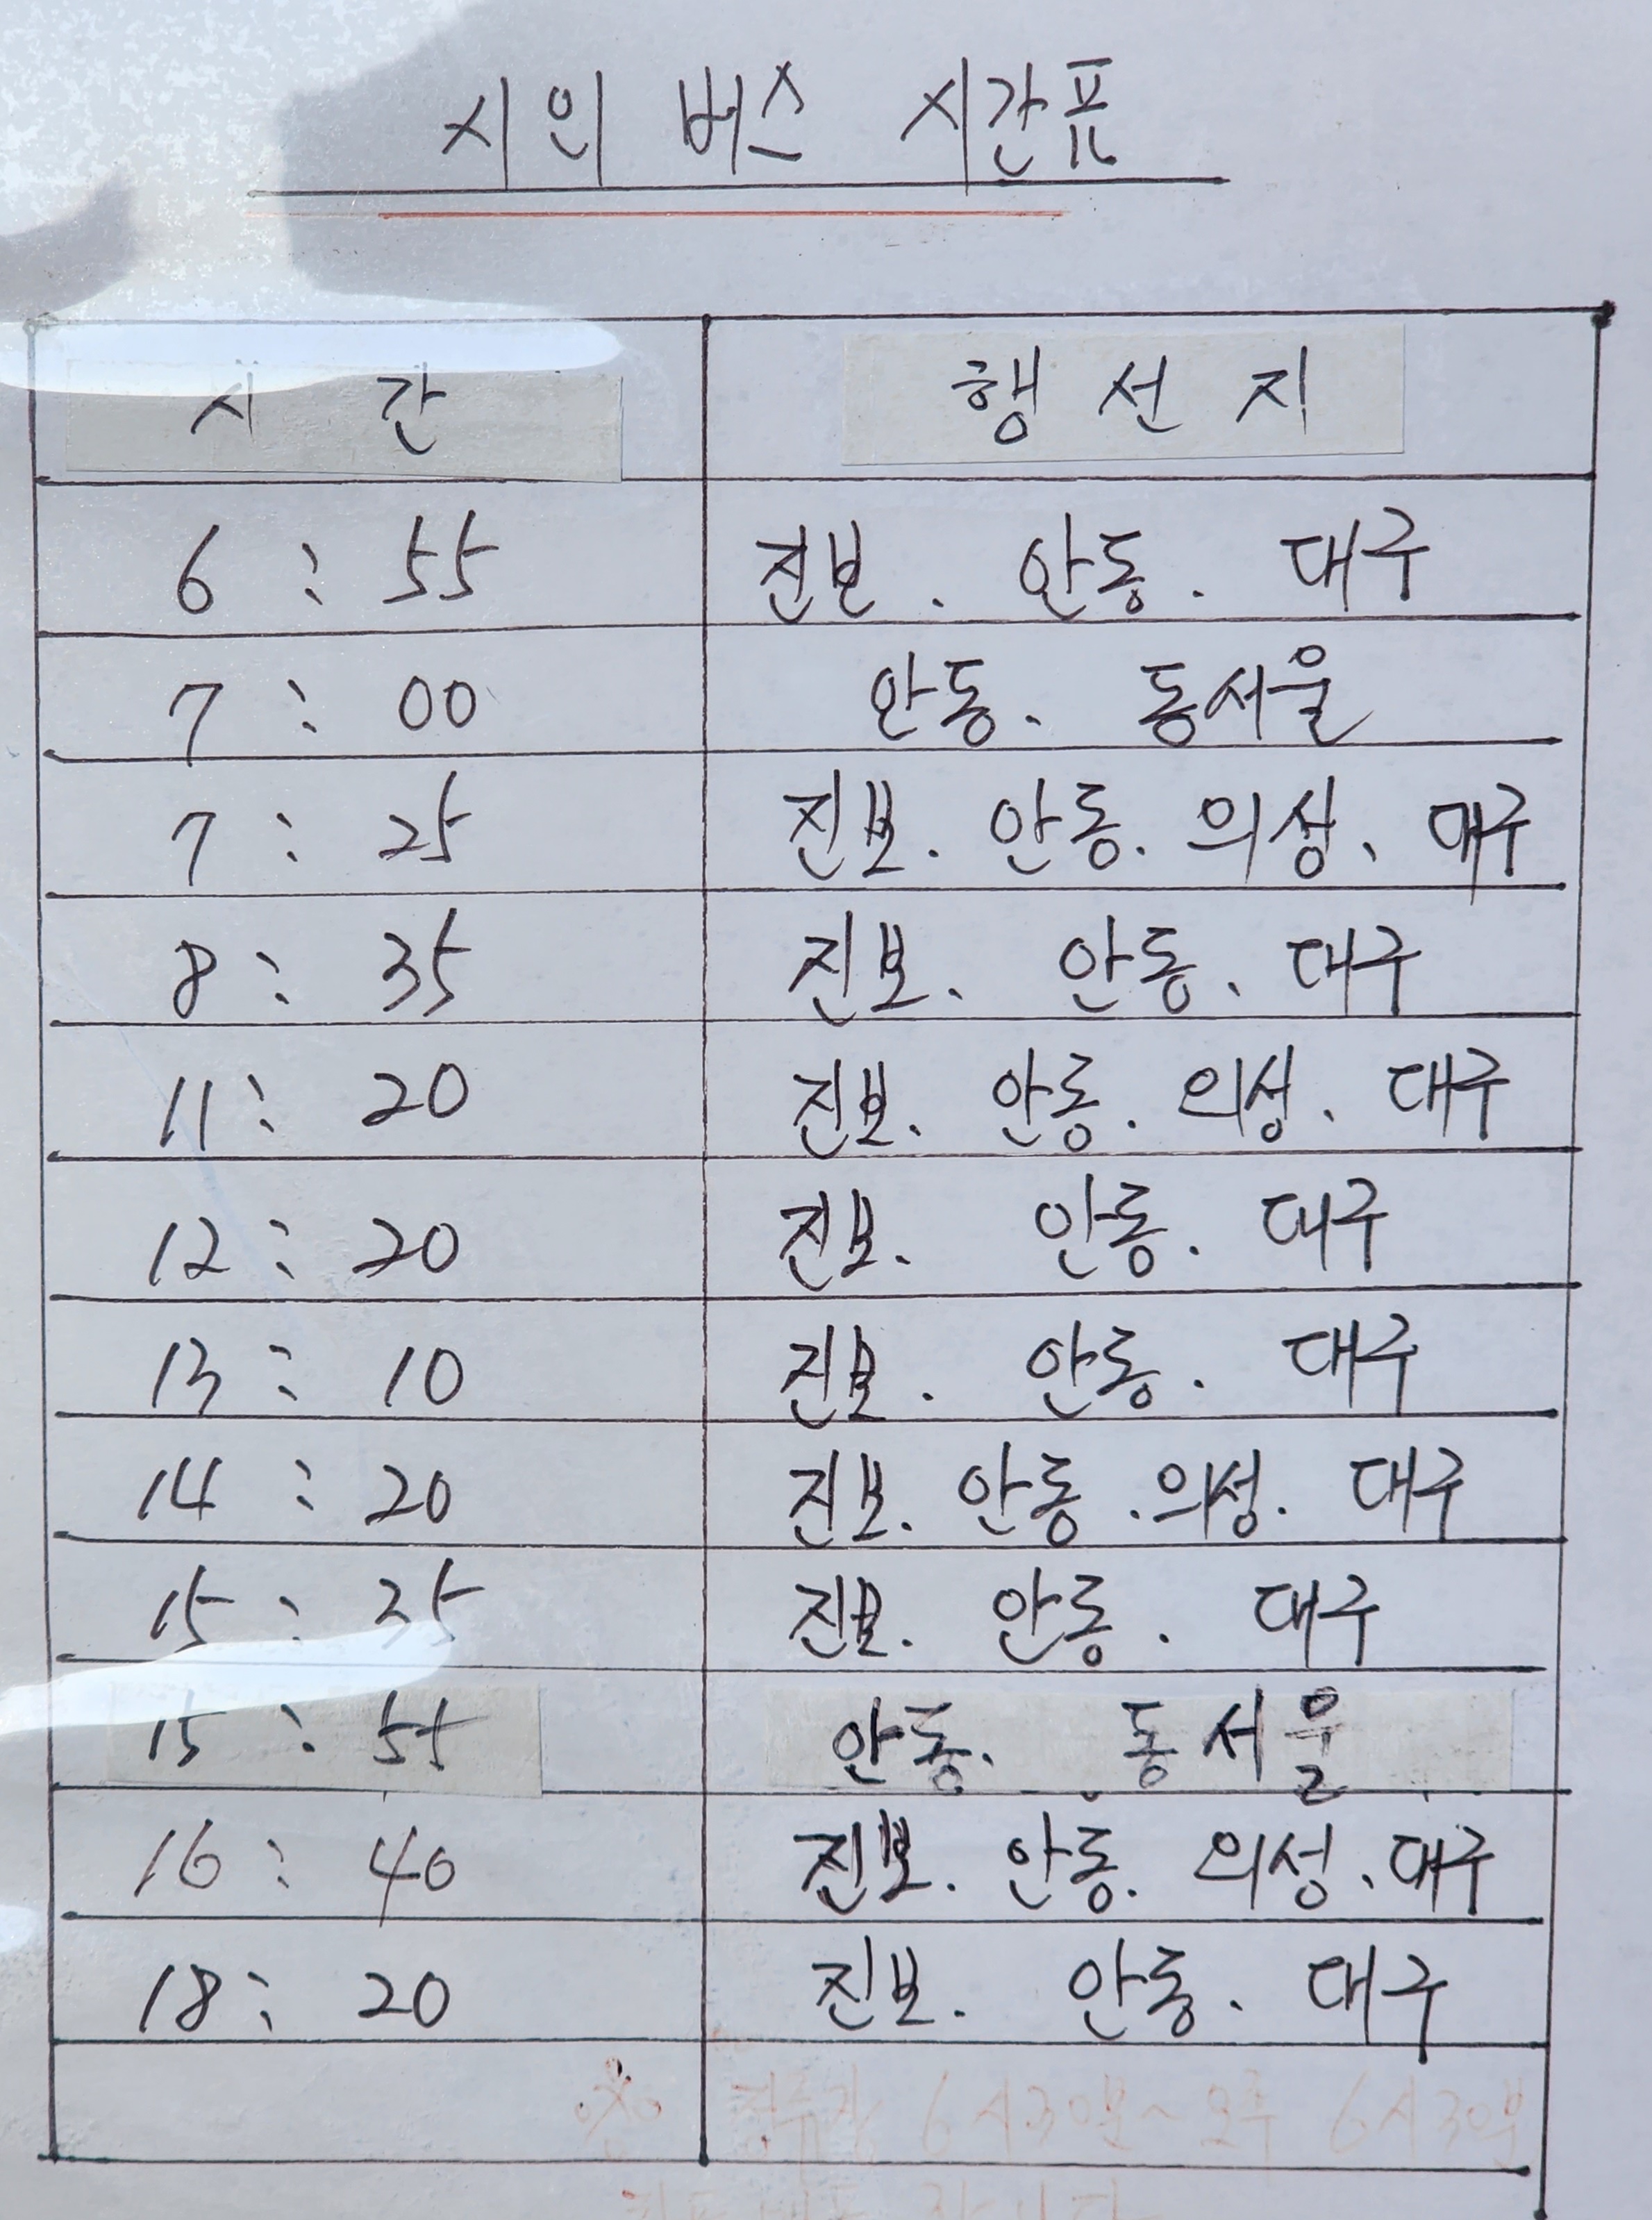 시외 버스 시간표
시 간 행 선 지
6 : 55 진보. 안동. 대구
7 : 00 안동. 동서울
7 : 25 진보. 안동. 의성. 대구
8 : 35 진보. 안동. 대구
11 : 20 진보. 안동. 의성. 대구
12 : 20 진보. 안동. 대구
13 : 10 진보. 안동. 대구
14 : 20 진보. 안동. 의성. 대구
15 : 35 진보. 안동. 대구
15 : 55 안동. 동서울
16 : 40 진보. 안동. 의성. 대구
18 : 20 진보. 안동. 대구
※ 정류장 6시30분~오후 6시30분